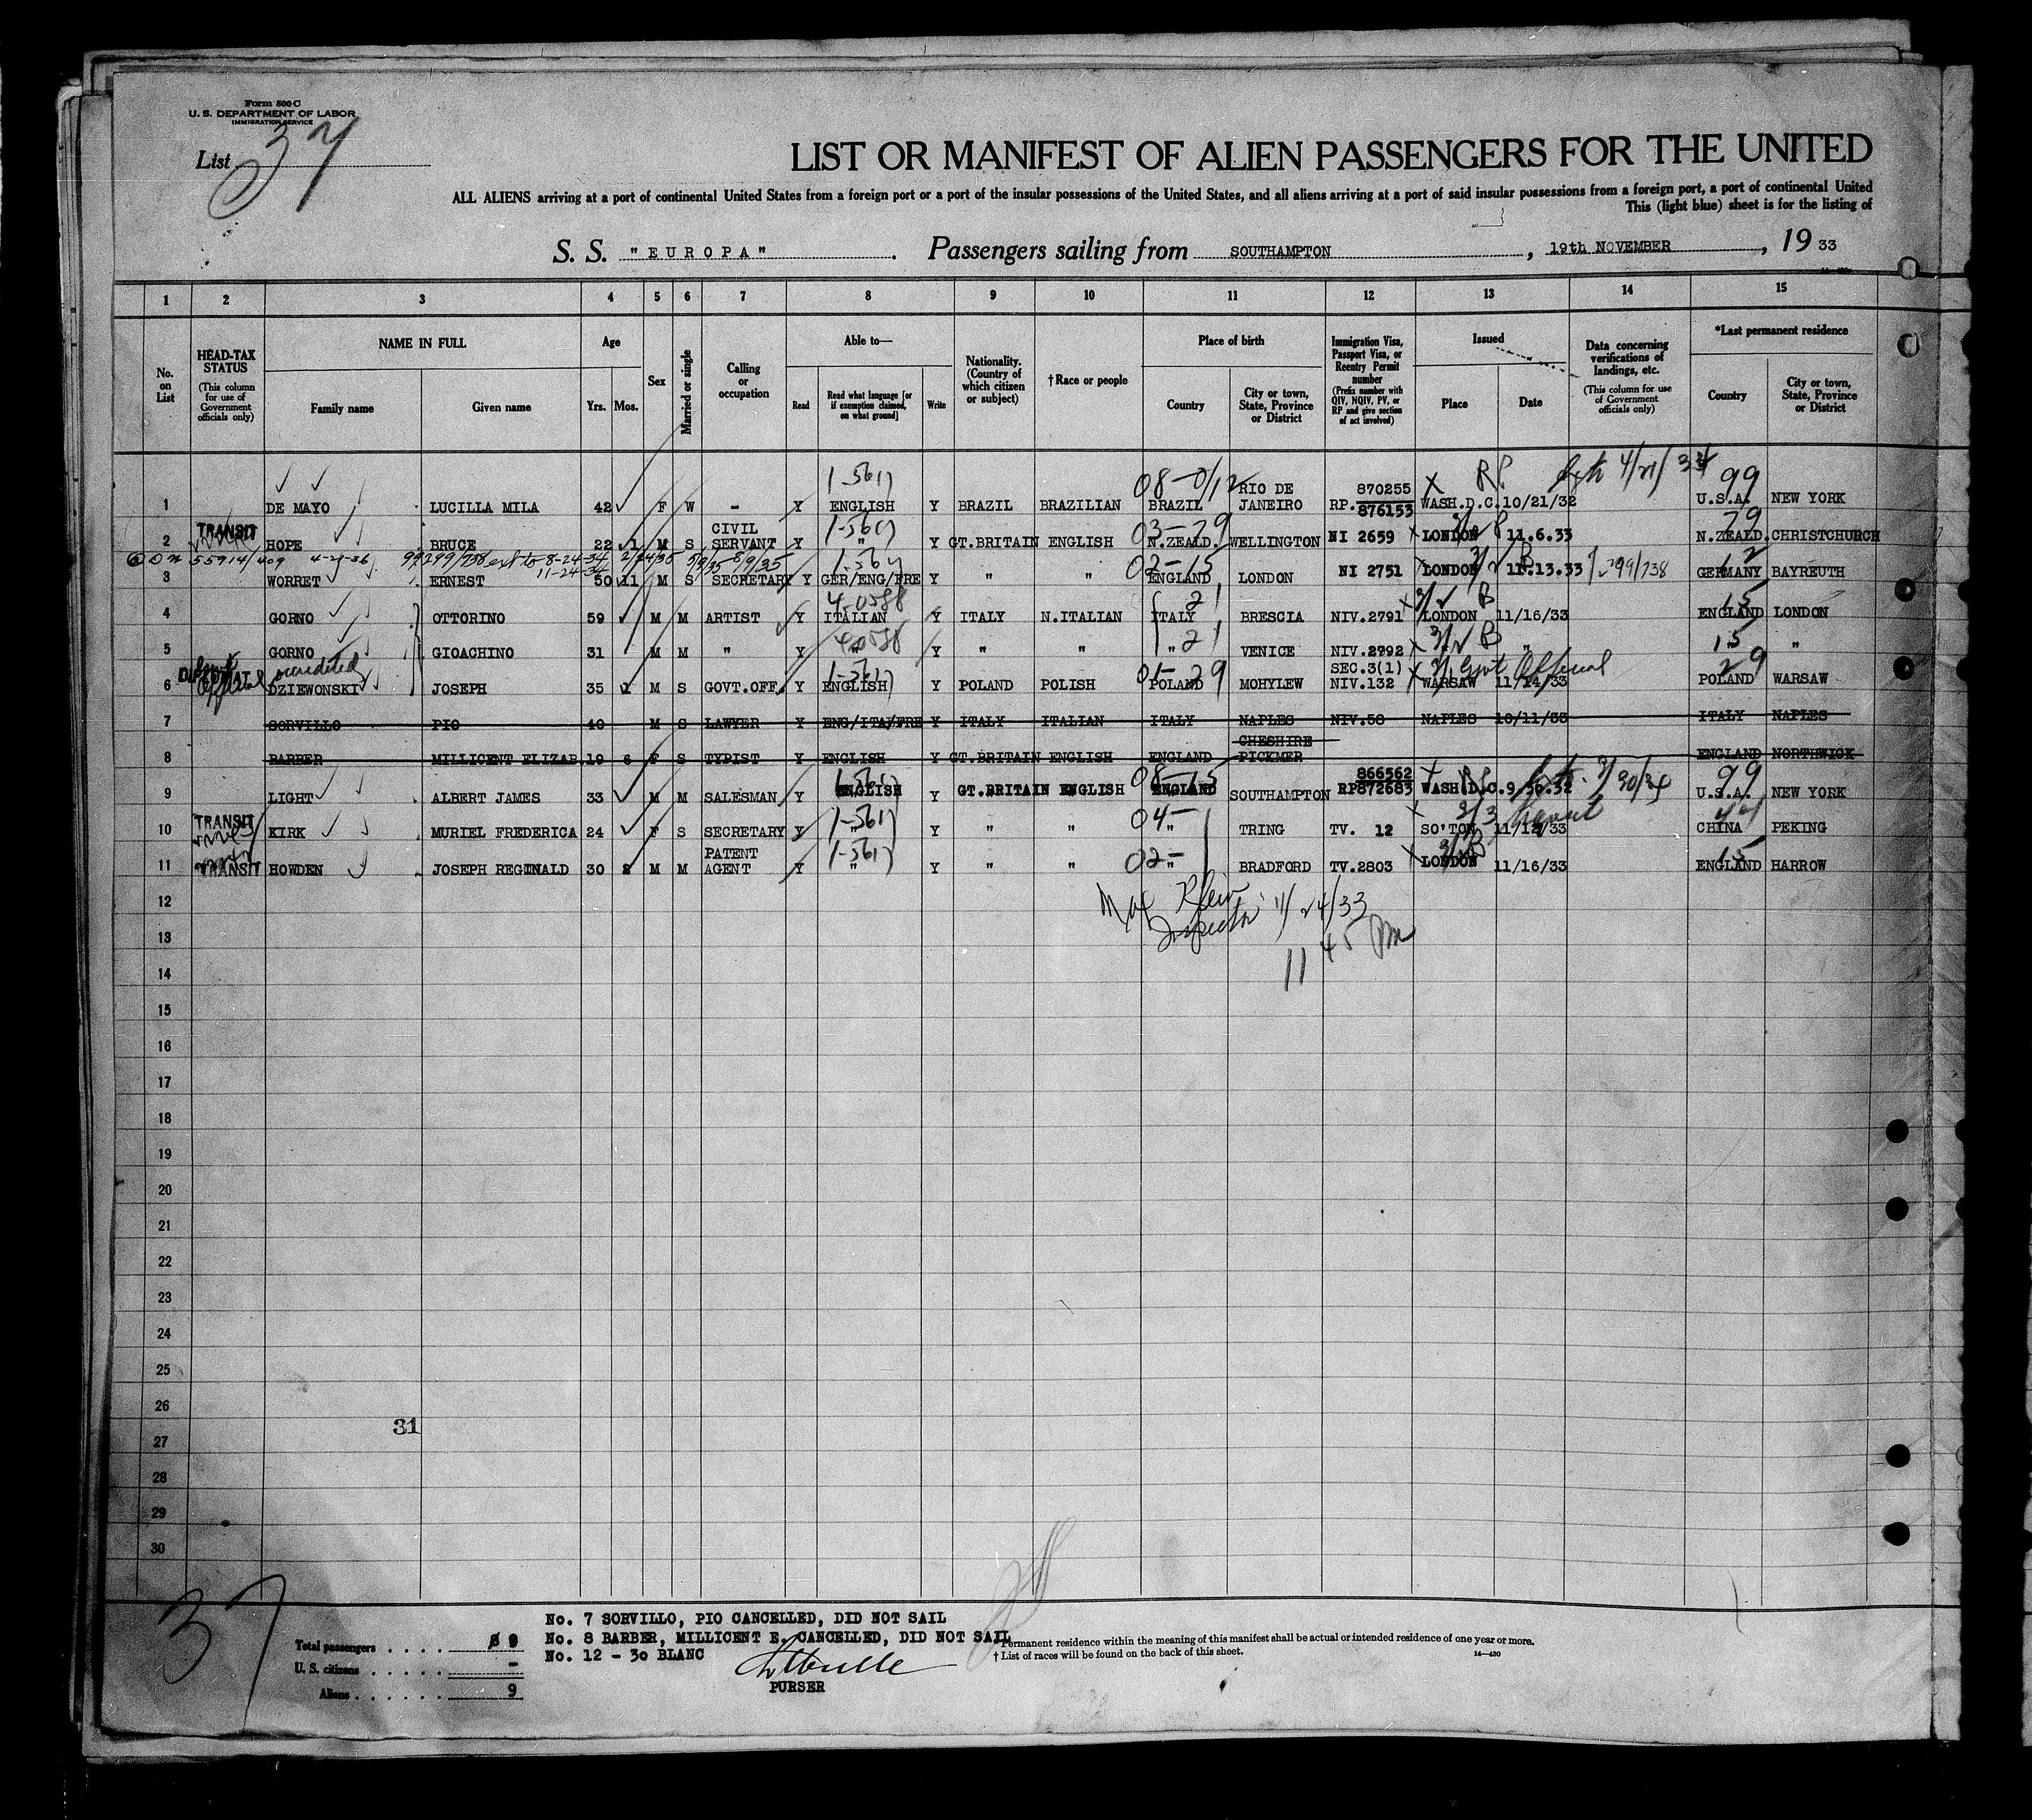 Form 500 C
U. S. DEPARTMENT OF LABOR
IMMIGRATION SERVICE
List 37
LIST OR MANIFEST OF ALIEN PASSENGERS FOR THE UNITED
ALL ALIENS arriving at a port of continental United States from a foreign port or a port of the insular possessions of the United States, and all aliens arriving at a port of said insular possessions from a foreign port, a port of continental United
This (light blue) sheet is for the listing of
S. S. "EUROPA". Passengers sailing from SOUTHAMPTON, 19th NOVEMBER, 19 33
1 2 3 4 5 6 7 8 9 10 11 12 13 14 15
No. on List
HEAD-TAX STATUS (This column for use of Government officials only)
NAME IN FULL Family name Given name
Age Yrs. Mos.
Sex
Married or single
Calling or occupation
Able to— Read Read what language [or if exemption claimed, on what ground] Write
Nationality. (Country of which citizen or subject)
† Race or people
Place of birth Country City or town, State, Province or District
Immigration Visa, Passport Visa, or Reentry Permit number (Prefix number with QIV, NQIV, PV, or RP and give section of act involved)
Issued Place Date
Data concerning verifications of landings, etc. (This column for use of Government officials only)
*Last permanent residence Country City or town, State, Province or District
1-5617 08-0/12 RP. 4/21/34 99
1 DE MAYO LUCILLA MILA 42 F W - Y ENGLISH Y BRAZIL BRAZILIAN BRAZIL RIO DE JANEIRO RP. 870255 876153 WASH.D.C. 10/21/32 U.S.A. NEW YORK
1-5617 03-29 29
2 TRANSIT HOPE BRUCE 22 1 M S CIVIL SERVANT Y " Y GT.BRITAIN ENGLISH N.ZEALD. WELLINGTON NI 2659 LONDON 11.6.33 N.ZEALD. CHRISTCHURCH
55914/409 4-21-36 99299/738 ext to 8-24-34 11-24-34 2/24/35 5/9/35 8/9/35 02-15 99/738 12
3 WORRET ERNEST 50 11 M S SECRETARY Y GER/ENG/FRE Y " " ENGLAND LONDON NI 2751 LONDON 11.13.33 GERMANY BAYREUTH
4-0588 21 B 15
4 GORNO OTTORINO 59 M M ARTIST Y ITALIAN Y ITALY N.ITALIAN ITALY BRESCIA NIV.2791 LONDON 11/16/33 ENGLAND LONDON
4-0588 21 B 15
5 GORNO GIOACHINO 31 M M " Y " Y " " " VENICE NIV.2792 " " "
Govt Official accredited 1-5617 01-29 Govt Official 29
6 DIPLOMAT DZIEWONSKI JOSEPH 35 1 M S GOVT.OFF. Y ENGLISH Y POLAND POLISH POLAND MOHYLEW SEC.3(1) NIV.132 WARSAW 11/14/33 POLAND WARSAW
7 SORVILLO PIO 40 M S LAWYER Y ENG/ITA/FRE Y ITALY ITALIAN ITALY NAPLES NIV.58 NAPLES 10/11/33 ITALY NAPLES
8 BARBER MILLICENT ELIZAB. 19 6 F S TYPIST Y ENGLISH Y GT.BRITAIN ENGLISH ENGLAND CHESHIRE PICKMER ENGLAND NORTHWICK
1-5617 08-15 99
9 LIGHT ALBERT JAMES 33 M M SALESMAN Y ENGLISH Y GT.BRITAIN ENGLISH ENGLAND SOUTHAMPTON RP 866562 872683 WASH.D.C. 9.30.32 U.S.A. NEW YORK
1-5617 04-
10 TRANSIT KIRK MURIEL FREDERICA 24 F S SECRETARY Y " Y " " " TRING TV. 12 SO'TON 11/12/33 CHINA PEKING
1-5617 02- 15
11 TRANSIT HOWDEN JOSEPH REGINALD 30 2 M M PATENT AGENT Y " Y " " " BRADFORD TV.2803 LONDON 11/16/33 ENGLAND HARROW
12 Max Klein 11/24/33
13 Inspector 11 45 Pm
14
15
16
17
18
19
20
21
22
23
24
25
26
31
27
28
29
30
37
No. 7 SORVILLO, PIO CANCELLED, DID NOT SAIL
No. 8 BARBER, MILLICENT E. CANCELLED, DID NOT SAIL
No. 12 - 30 BLANC
PURSER
Total passengers . . . . 9
U. S. citizens . . . . . -
Aliens . . . . . . 9
* Permanent residence within the meaning of this manifest shall be actual or intended residence of one year or more.
† List of races will be found on the back of this sheet.
14—430